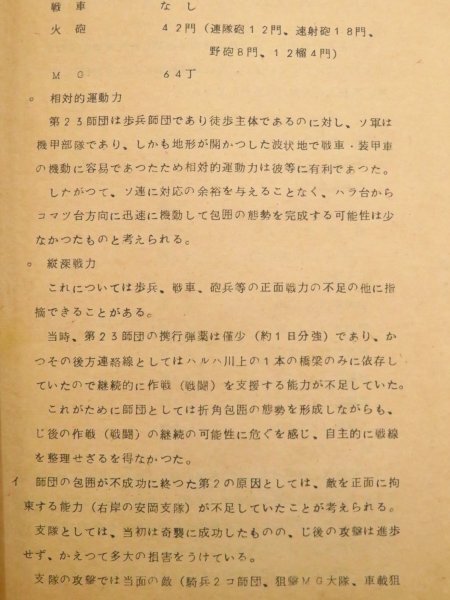 戦車　なし
火砲　４２門（連隊砲１２門、速射砲１８門、
野砲８門、１２榴４門）
ＭＧ　６４丁
○　相対的運動力
第２３師団は歩兵師団であり徒歩主体であるのに対し、ソ軍は
機甲部隊であり、しかも地形が開かつした波状地で戦車・装甲車
の機動に容易であつたため相対的運動力は彼等に有利であつた。
したがつて、ソ連に対応の余裕を与えることなく、ハラ台から
コマツ台方向に迅速に機動して包囲の態勢を完成する可能性は少
なかつたものと考えられる。
○　縦深戦力
これについては歩兵、戦車、砲兵等の正面戦力の不足の他に指
摘できることがある。
当時、第２３師団の携行弾薬は僅少（約１日分強）であり、か
つその後方連絡線としてはハルハ川上の１本の橋梁のみに依存し
ていたので継続的に作戦（戦闘）を支援する能力が不足していた。
これがために師団としては折角包囲の態勢を形成しながらも、
じ後の作戦（戦闘）の継続の可能性に危ぐを感じ、自主的に戦線
を整理せざるを得なかつた。
イ　師団の包囲が不成功に終つた第２の原因としては、敵を正面に拘
束する能力（右岸の安岡支隊）が不足していたことが考えられる。
支隊としては、当初は奇襲に成功したものの、じ後の攻撃は進歩
せず、かえつて多大の損害をうけている。
支隊の攻撃では当面の敵（騎兵２コ師団、狙撃ＭＧ大隊、車載狙